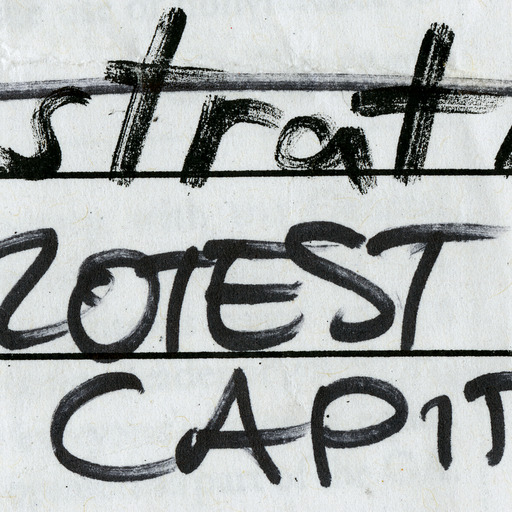 strat
ROTEST
CAPIT